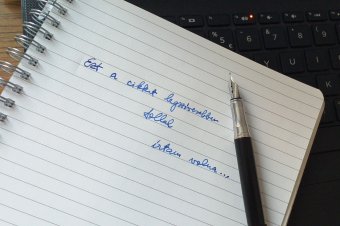 Ezt a cikket legszívesebben
tollal
írtam volna...